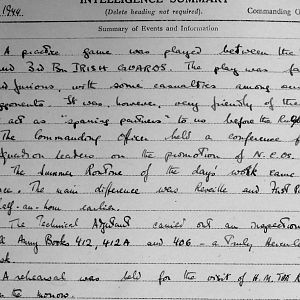 INTELLIGENCE SUMMARY
1944
(Delete heading not required).
Commanding O
Summary of Events and Information
A practice game was played between the
3rd Bn IRISH GUARDS. The play was fa
furious, with some casualties among our
opponents. It was, however, very friendly of the
act as "sparring partners" to us before the
The Commanding Officer held a conference f
Squadron leaders on the promotion of N.C.Os.
The Summer Routine of the days work came
The main difference was Reveille and First P
half-an-hour earlier.
The Technical Adjutant carried out an inspection
Army Books 412, 412A and 406 - a truly Hercule
A rehearsal was held for the visit of H.M. THE K